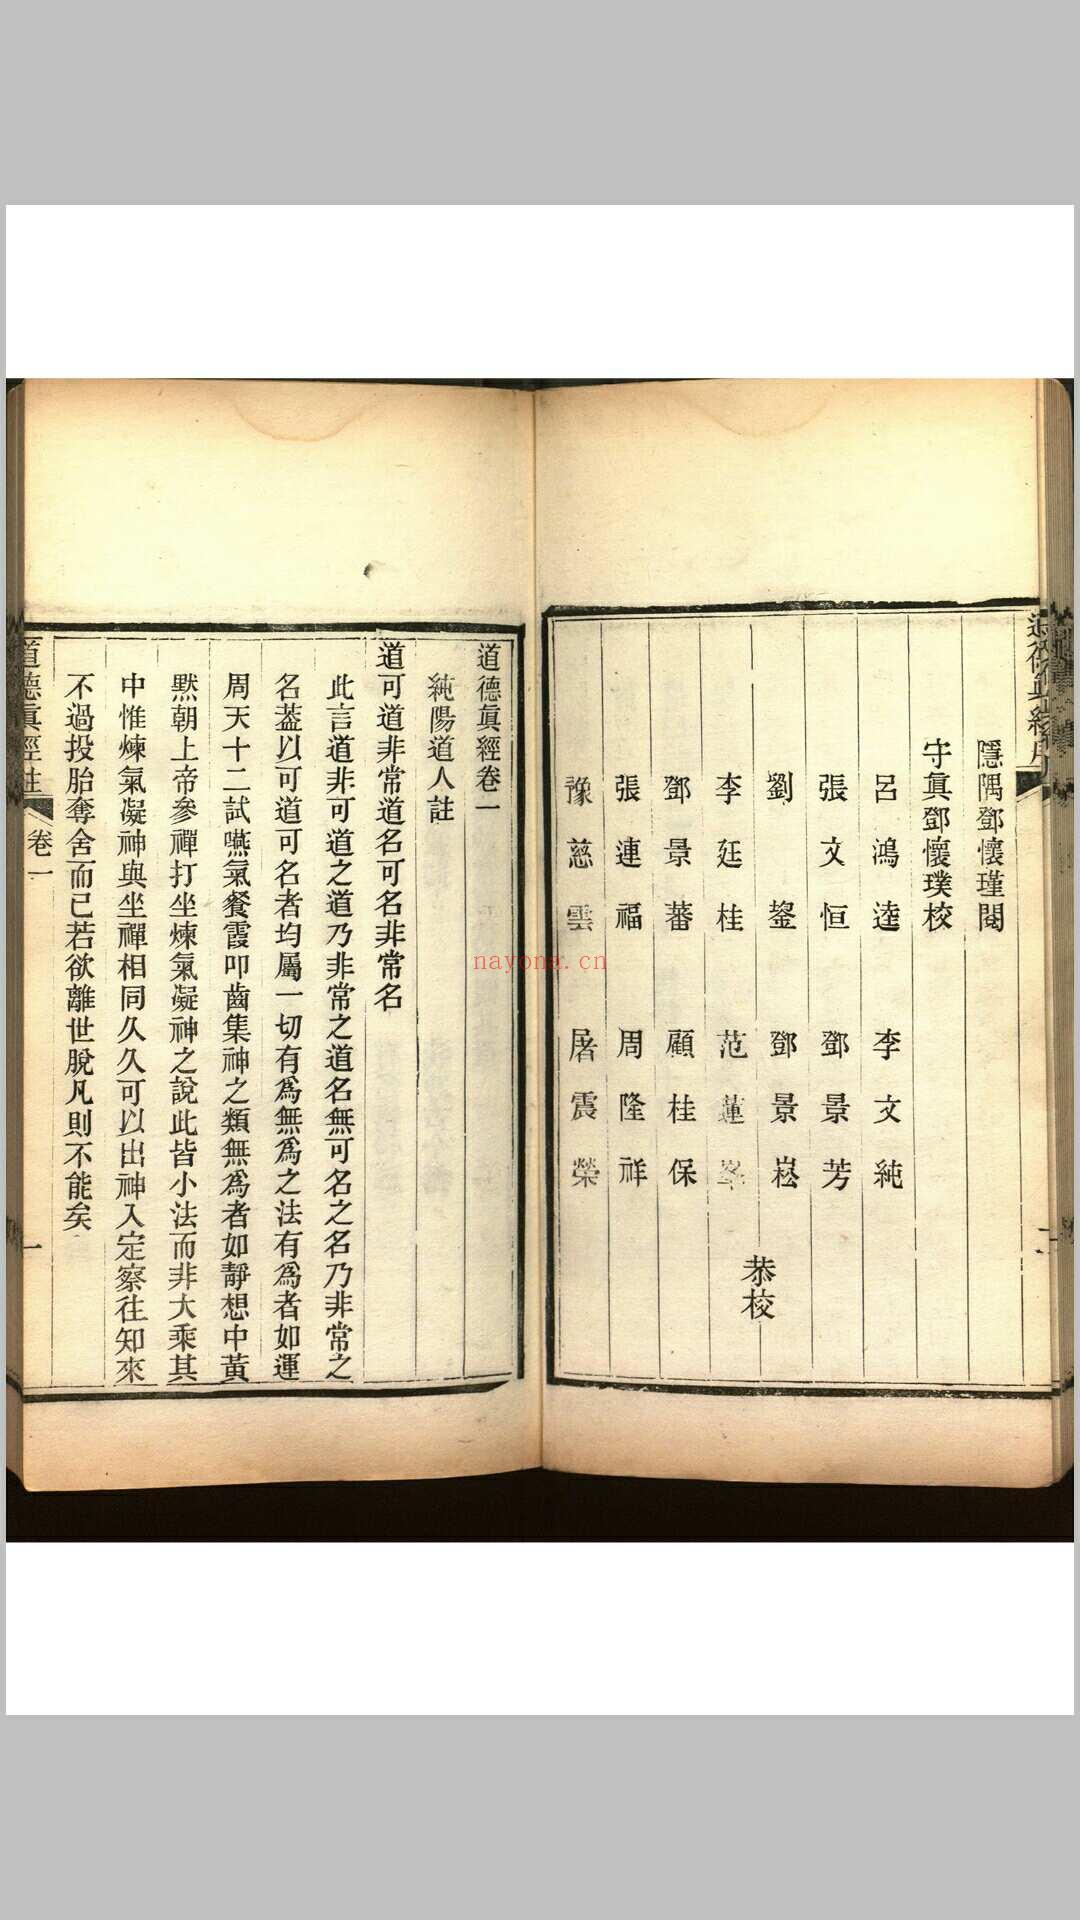 隱隅鄧懷瑾閱
守眞鄧懷璞校
呂鴻逵 李文純
張文恒 鄧景芳
劉鋆 鄧景崧
李廷桂 范蓮峯
鄧景蕃 顧桂保
張連福 周隆祥
豫慈雲 屠震榮
恭校
道德眞經卷一
純陽道人註
道可道非常道名可名非常名
此言道非可道之道乃非常之道名無可名之名乃非常之
名葢以可道可名者均屬一切有爲無爲之法有爲者如運
周天十二試嚥氣餐霞叩齒集神之類無爲者如靜想中黃
黙朝上帝參禪打坐煉氣凝神之說此皆小法而非大乘其
中惟煉氣凝神與坐禪相同久久可以出神入定察往知來
不過投胎奪舍而已若欲離世脫凡則不能矣
道德眞經註 卷一 一
nayona.cn